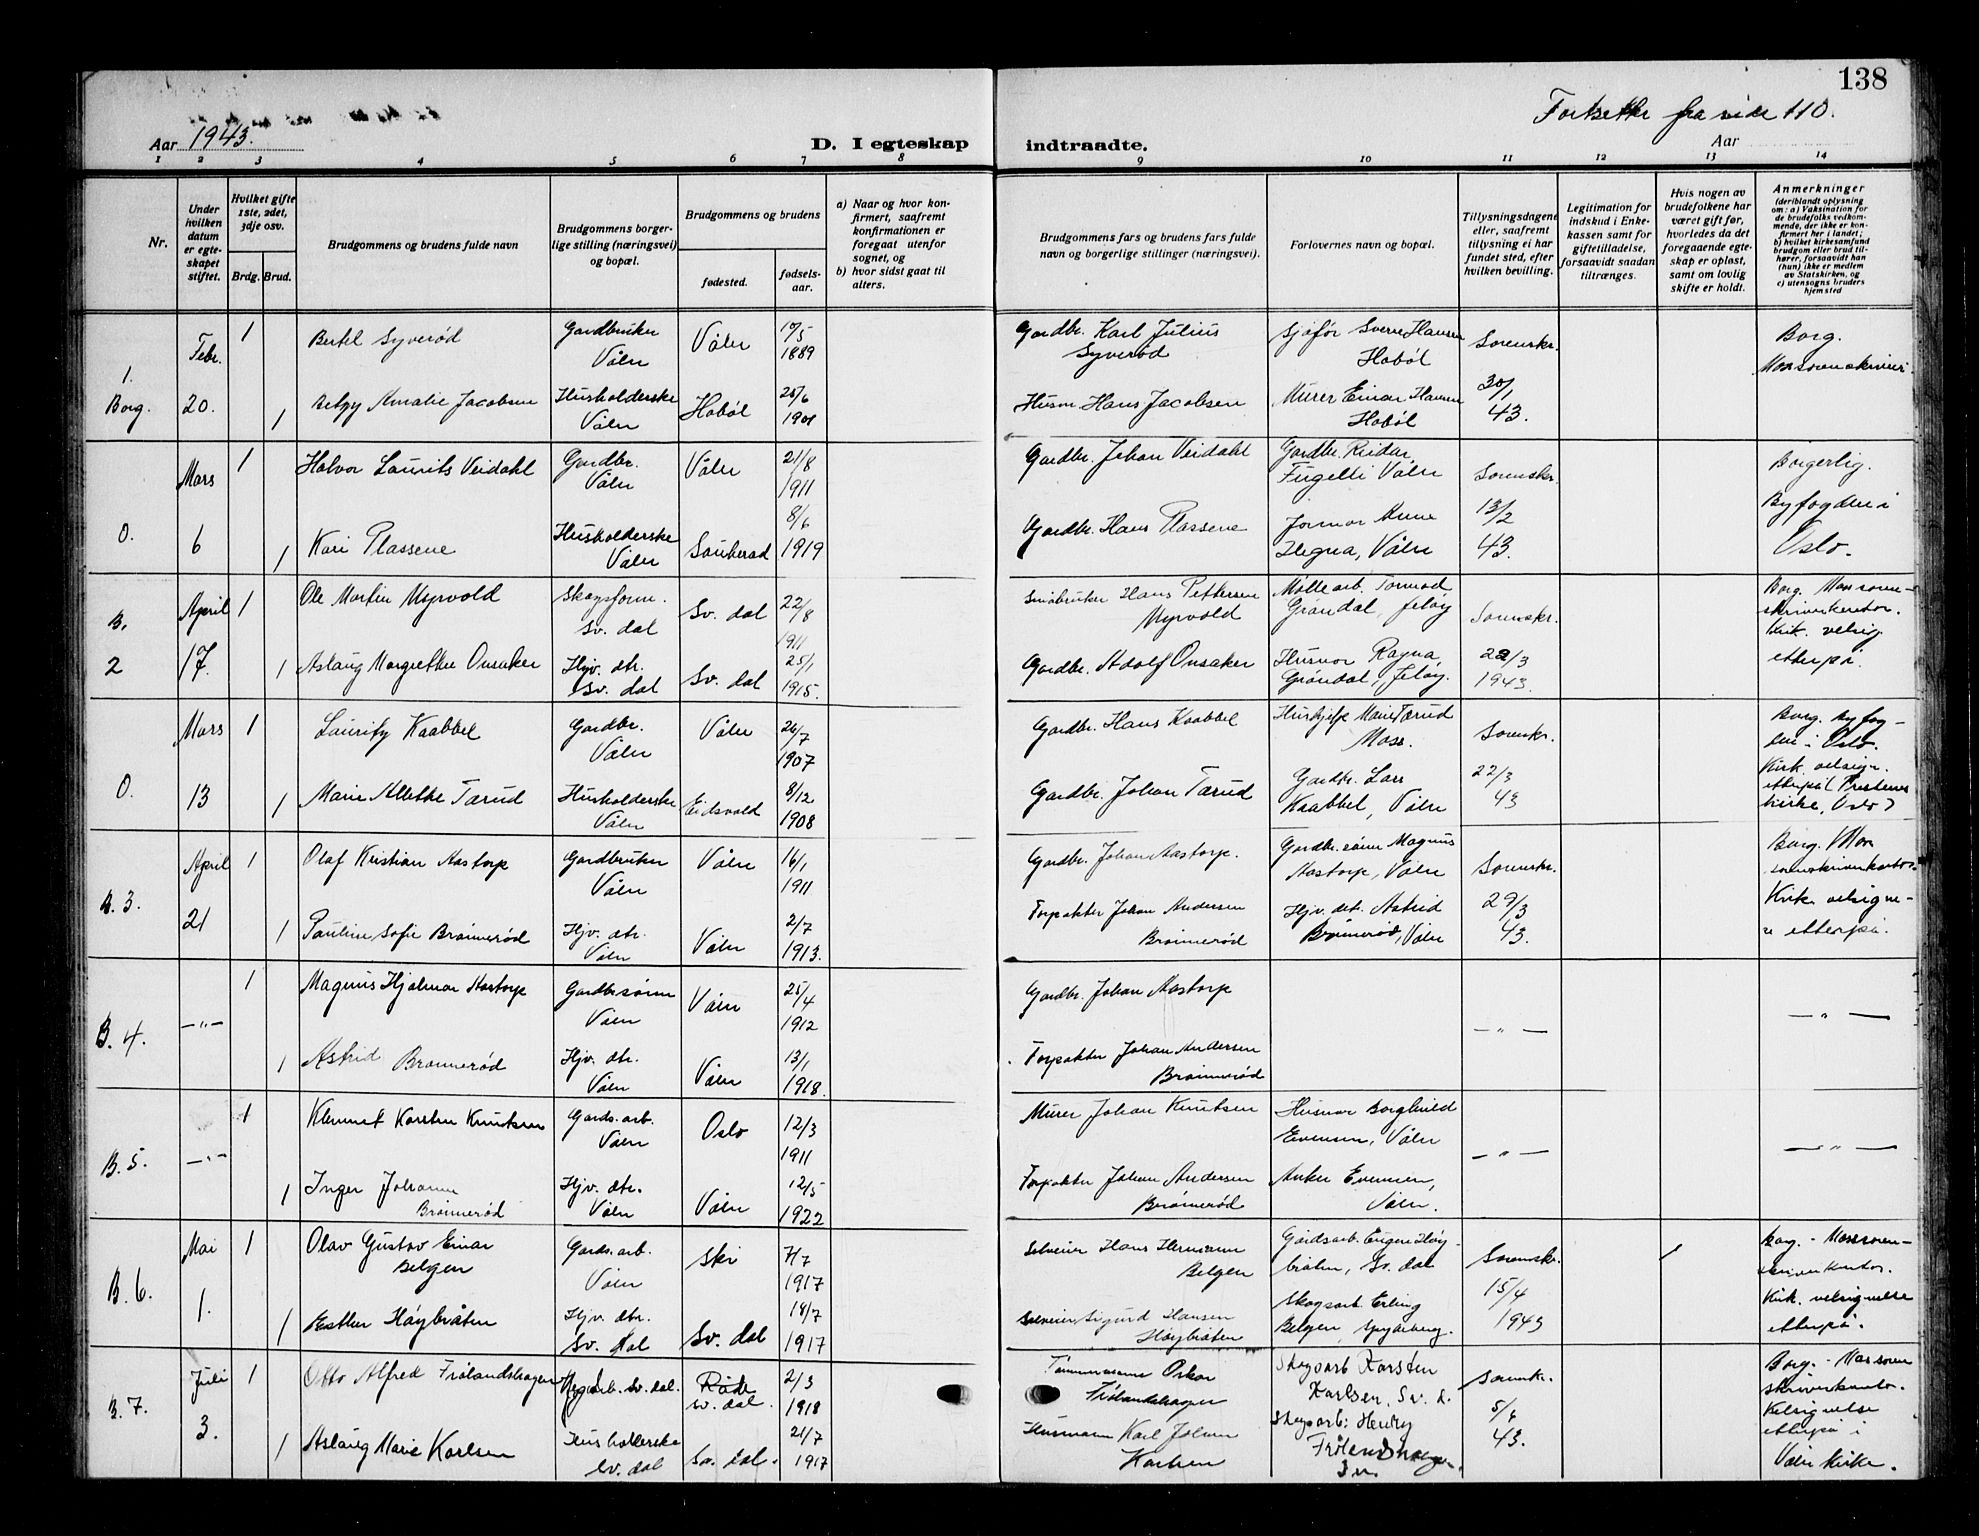 138
Fortsetter fra side 110.
Aar 1943.
D. I egteskap
indtraadte.
Aar
1 2 3 4 5 6 7 8 9 10 11 12 13 14
Nr.
Under hvilken datum er egteskapet stiftet.
Hvilket gifte 1ste, 2det, 3dje osv.
Brdg. Brud.
Brudgommens og brudens fulde navn
Brudgommens borgerlige stilling (næringsvei) og bopæl.
Brudgommens og brudens
fødested.
fødselsaar.
a) Naar og hvor konfirmert, saafremt konfirmationen er foregaat utenfor sognet, og
b) hvor sidst gaat til alters.
Brudgommens fars og brudens fars fulde navn og borgerlige stillinger (næringsvei).
Forlovernes navn og bopæl.
Tillysningsdagene eller, saafremt tillysning ei har fundet sted, efter hvilken bevilling.
Legitimation for indskud i Enkekassen samt for giftetilladelse, forsaavidt saadan tiltrænges.
Hvis nogen av brudefolkene har været gift før, hvorledes da det foregaaende egteskap er opløst, samt om lovlig skifte er holdt.
Anmerkninger (deriblandt oplysning om: a) Vaksination for de brudefolks vedkommende, der ikke er konfirmert her i landet; b) hvilket kirkesamfund brudgom eller brud tilhører, forsaavidt han (hun) ikke er medlem av Statskirken, og c) utensogns bruders hjemsted
1. Borg. Febr. 20.
1 Bertel Syverød Gardbruker Våler Våler 10/5 1889 Gardbr. Karl Julius Syverød Sjåfør Sverre Hansen Hobøl Sorenskr. 30/1 43. Borg. Moss sorenskriveri
1 Betzy Amalie Jacobsen Husholderske Våler Hobøl 25/6 1901 Husm. Hans Jacobsen Murer Einar Hansen Hobøl
0. Mars 6
1 Halvor Laurits Veidahl Gardbr. Våler Våler 21/8 1911 Gardbr. Johan Veidahl Gardbr. Reidar Fugelli Våler Sorenskr. 13/2 43. Borgerlig. Byfogden i Oslo.
1 Kari Plassene Husholderske Våler Sauherad 8/6 1919 Gardbr. Hans Plassene Jormor Anne Hegna, Våler
B. 2 April 17.
1 Ole Martin Myrvold Skogsform. Sv. dal Sv. dal 22/8 1911 Småbruker Hans Pettersen Myrvold Møllearb. Tormod Grøndal, Jeløy Sorenskr. 22/3 1943. Borg. Moss sorenskriverkontor. Kirk. velsig. etterpå.
1 Aslaug Margrethe Onsaker Hjv. dtr. Sv. dal Sv. dal 25/1 1915. Gardbr. Adolf Onsaker Husmor Ragna Grøndal, Jeløy.
0. Mars 13
1 Lauritz Kaabbel Gardbr. Våler Våler 26/7 1907 Gardbr. Hans Kaabbel Hushjelp Marie Tærud Moss. Sorenskr. 22/3 43 Borg. byfogden i Oslo. Kirk. velsign. etterpå (Prestenes kirke, Oslo)
1 Marie Alette Tærud Husholderske Våler Eidsvold 8/12 1908 Gardbr. Johan Tærud Gardbr. Lars Kaabbel, Våler
B. 3. April 21
1 Olaf Kristian Aastorp Gardbruker Våler Våler 16/1 1911 Gardbr. Johan Aastorp. Gardbr. sønn Magnus Aastorp, Våler Sorenskr. 29/3 43. Borg. Moss sorenskriverkontor. Kirk. velsignelse etterpå.
1 Pauline Sofie Brønnerød Hjv. dtr. Våler Våler 2/7 1913. Forpakter Johan Andersen Brønnerød Hjv. dtr. Astrid Brønnerød, Våler
B. 4. —"—
1 Magnus Hjalmar Aastorp Gardbr sønn Våler Våler 25/4 1912 Gardbr. Johan Aastorp —"— —"—
1 Astrid Brønnerød Hjv. dtr. Våler Våler 13/1 1918. Forpakter Johan Andersen Brønnerød
B. 5. —"—
1 Klemmet Karsten Knutsen Gards. arb. Våler Oslo 12/3 1911 Murer Johan Knutsen Husmor Borghild Evensen, Våler —"— —"—
1 Inger Johanne Brønnerød Hjv. dtr. Våler Våler 12/5 1922 Forpakter Johan Andersen Brønnerød Anker Evensen, Våler.
B. 6. Mai 1.
1 Olav Gustav Einar Belgen Gards. arb. Våler Ski 7/7 1917 Selveier Hans Hermann Belgen Gårdsarb. Eugen Høybråten, Sv. dal Sorenskr. 15/4 1943 Borg. - Moss sorenskriverkontor. Kirk. velsignelse etterpå.
1 Esther Høybråten Hjv. dtr. Sv. dal Sv. dal 18/7 1917 Selveier Sigurd Hansen Høybråten Skogsarb. Erling Belgen, Spydeberg.
B. 7. Juli 3.
1 Otto Alfred Frølandshagen arb. Sv. dal. Råde Sv. dal. 2/3 1918 Tømmermann Oskar Frølandshagen Skogsarb Karsten Karlsen, Sv. d. Sorenskr. 5/6 43. Borg. - Moss soren skriverkontor. Velsignelse etterpå i Våler kirke.
1 Aslaug Marie Karlsen Husholderske Sv. dal Sv. dal. 21/7 1917 Husmann Karl Johan Karlsen Skogsarb. Henry Frølandshagen.